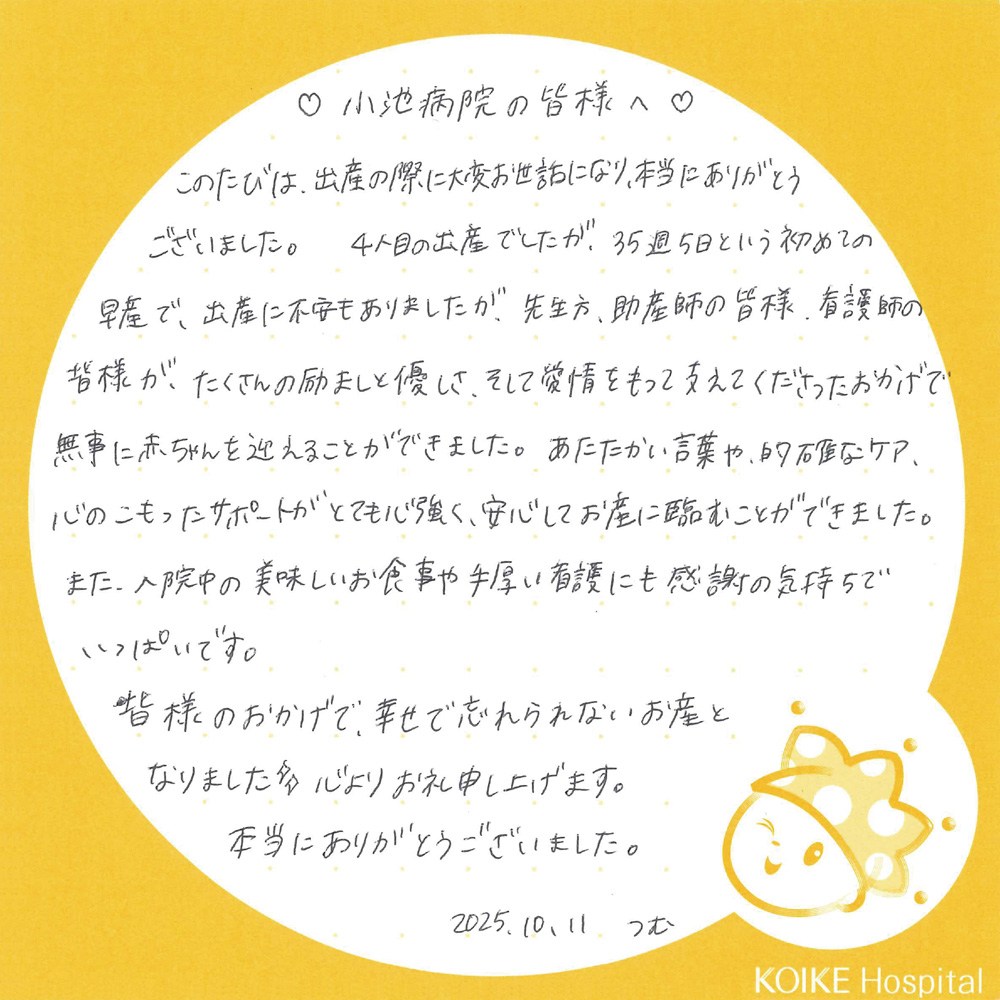 ♡ 小池病院の皆様へ ♡
このたびは、出産の際に大変お世話になり、本当にありがとう
ございました。 4人目の出産でしたが、35週5日という初めての
早産で、出産に不安もありましたが、先生方、助産師の皆様、看護師の
皆様が、たくさんの励ましと優しさ、そして愛情をもって支えてくださったおかげで
無事に赤ちゃんを迎えることができました。あたたかい言葉や、的確なケア、
心のこもったサポートがとても心強く、安心してお産に臨むことができました。
また、入院中の美味しいお食事や手厚い看護にも感謝の気持ちで
いっぱいです。
皆様のおかげで、幸せで忘れられないお産と
なりました 心よりお礼申し上げます。
本当にありがとうございました。
2025.10.11 つむ
KOIKE Hospital